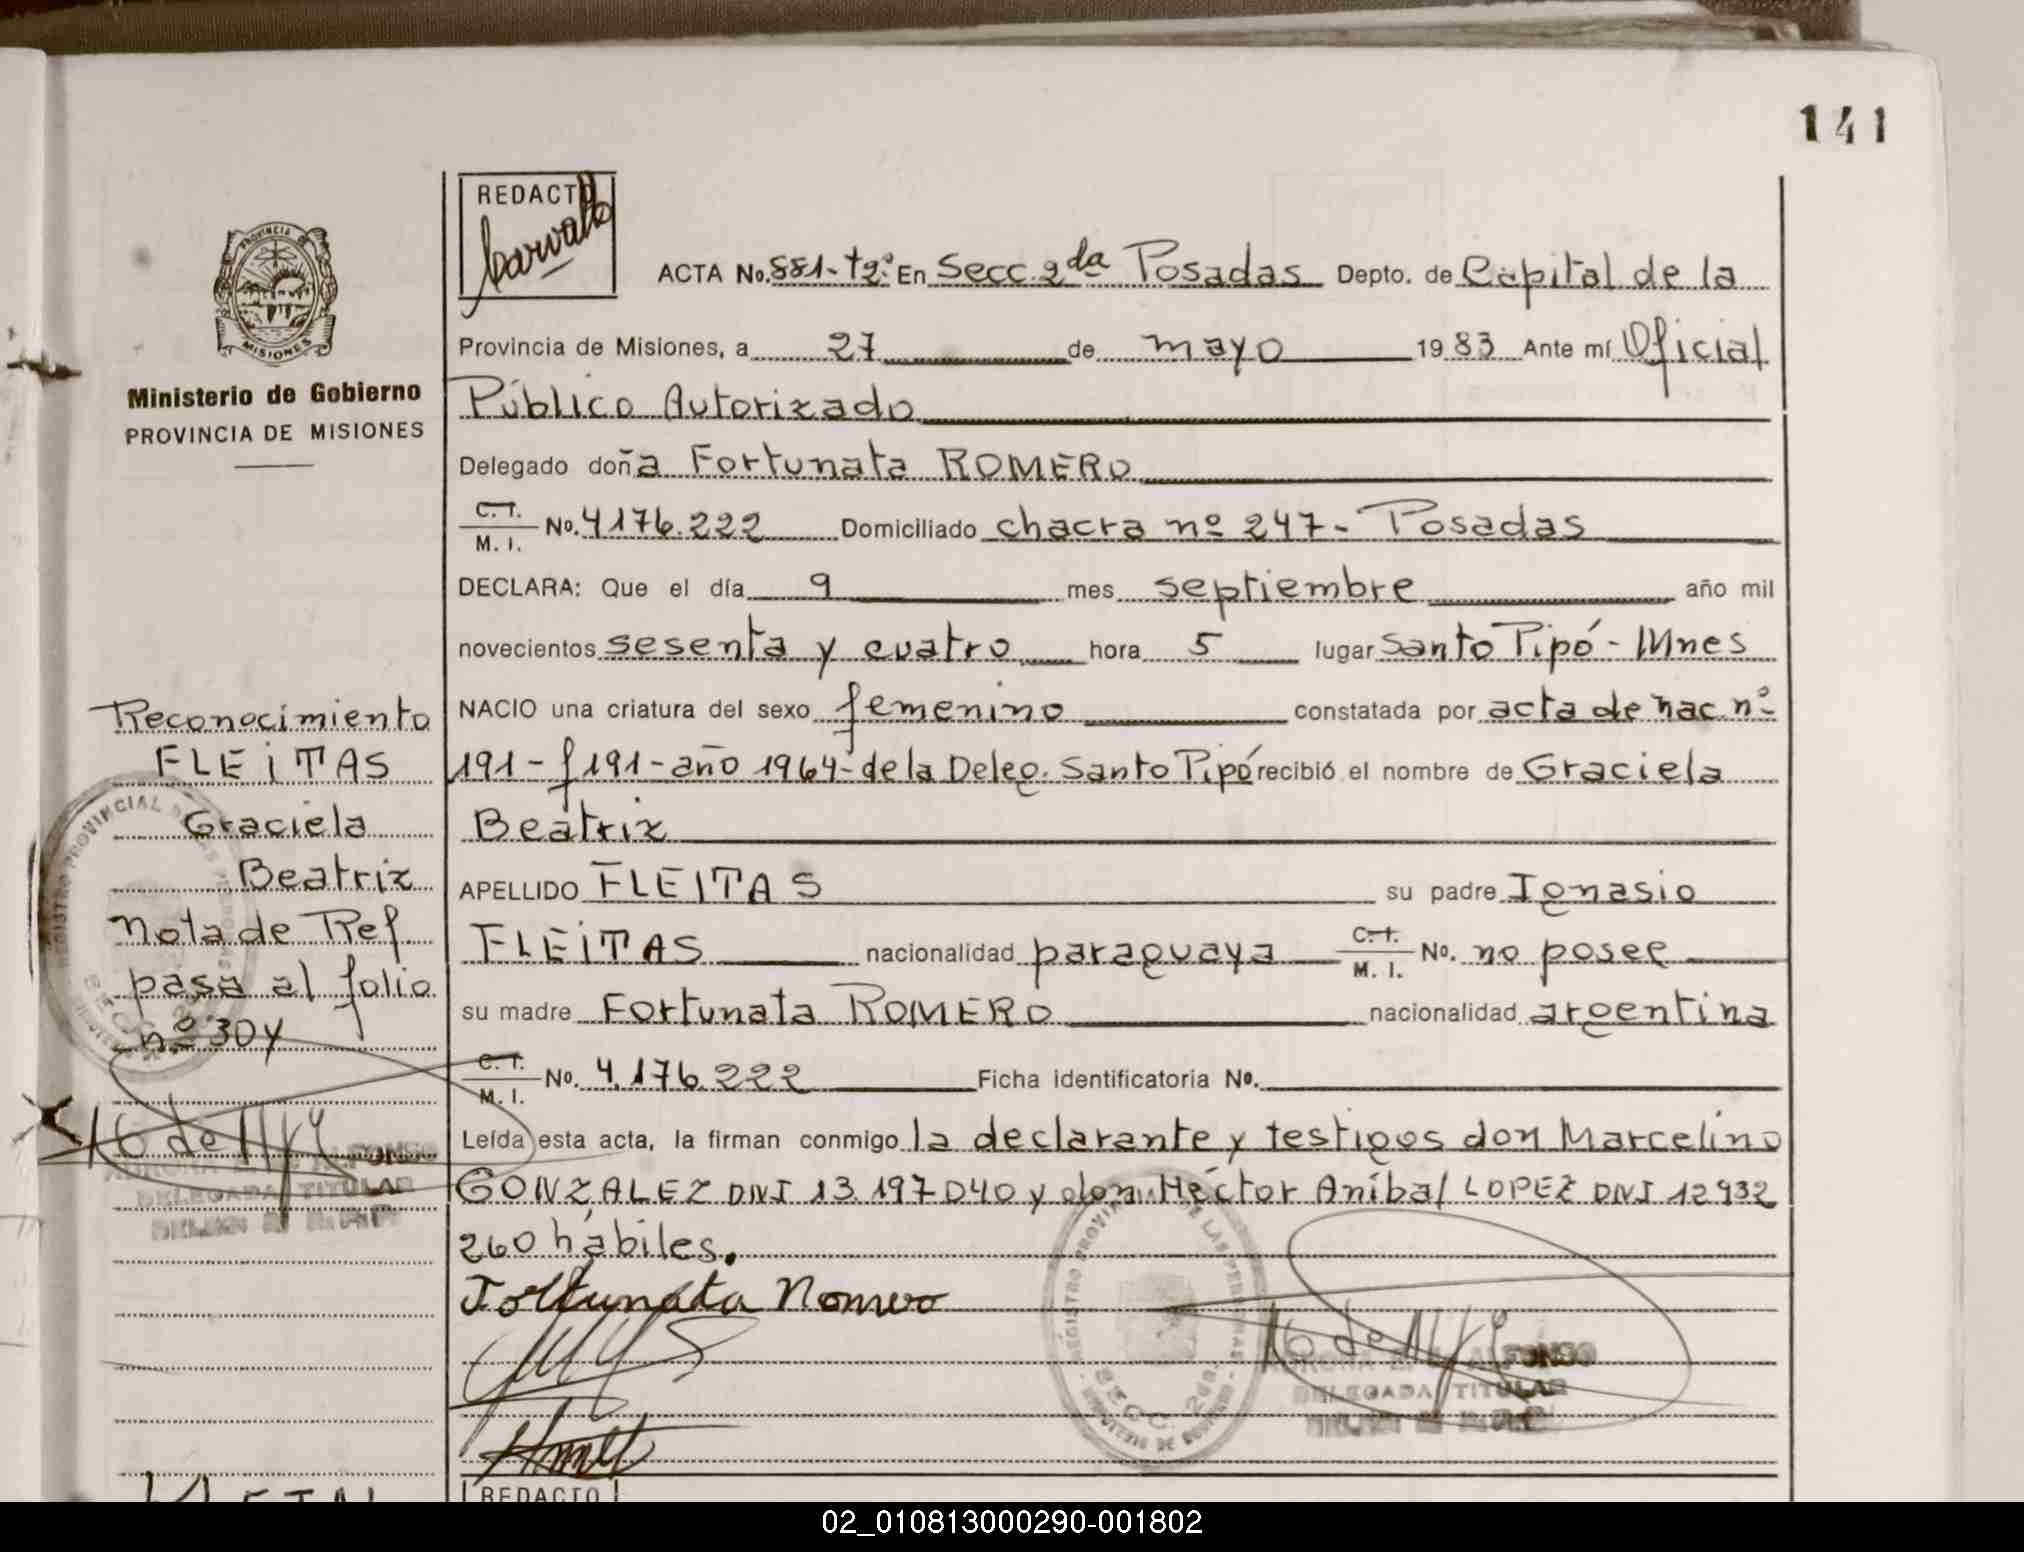 141
PROVINCIA DE
MISIONES
Ministerio de Gobierno
PROVINCIA DE MISIONES
REDACTO
ACTA No. 881-t2º En Secc. 2da Posadas Depto. de Capital de la
Provincia de Misiones, a 27 de mayo 1983 Ante mí Oficial
Público Autorizado
Delegado doña Fortunata ROMERO
C.I. M.I. No. 4176.222 Domiciliado chacra nº 247- Posadas
DECLARA: Que el día 9 mes septiembre año mil
novecientos sesenta y cuatro hora 5 lugar Santo Pipó - Mnes
NACIO una criatura del sexo femenino constatada por acta de nac. nº
191 - f 191 - año 1964 - de la Deleg. Santo Pipó recibió el nombre de Graciela
Beatriz
APELLIDO FLEITAS su padre Ignasio
FLEITAS nacionalidad paraguaya C.I. M.I. No. no posee
su madre Fortunata ROMERO nacionalidad argentina
C.I. M.I. No. 4.176.222 Ficha identificatoria No.
Leída esta acta, la firman conmigo la declarante y testigos don Marcelino
GONZALEZ DNI 13.197.040 y don Héctor Aníbal LOPEZ DNI 12 932
260 hábiles.
Fortunata Romero
Reconocimiento
FLEITAS
Graciela
Beatriz
Nota de Ref.
pasa al folio
nº 304
REGISTRO PROVINCIAL DE LAS PERSONAS
ALFONSO
DELEGADA TITULAR
REGISTRO PROVINCIAL DE LAS PERSONAS
SECC. 2da.
MINISTERIO DE GOBIERNO
ALFONSO
DELEGADA TITULAR
REDACTO
02_010813000290-001802